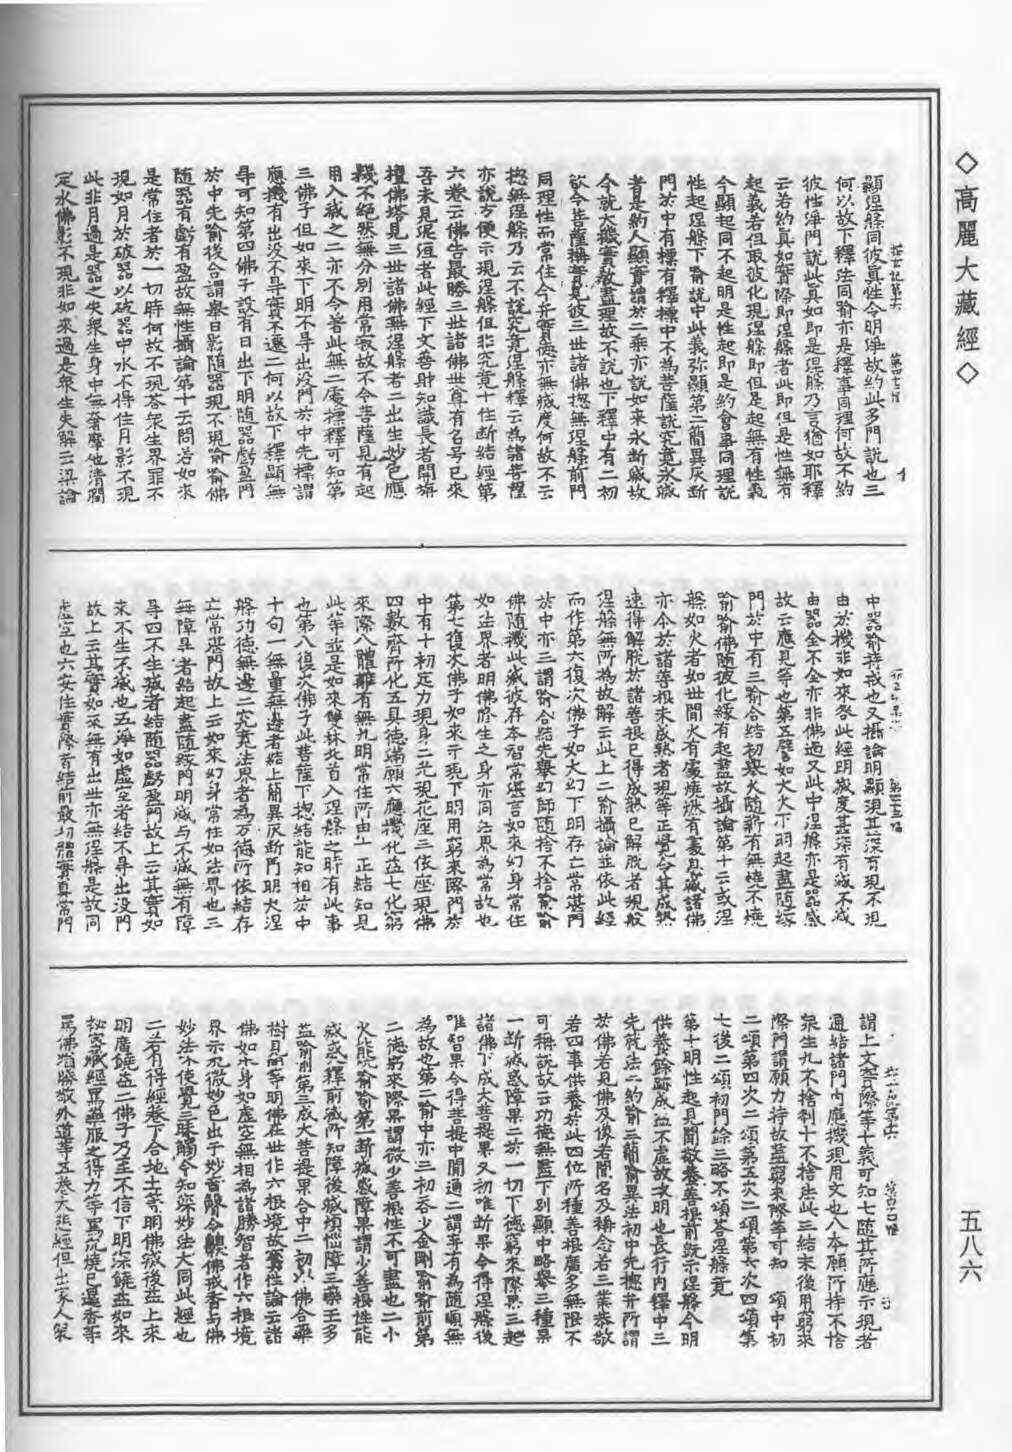 ◇高麗大藏經◇
五八六
顯涅槃同彼眞性令明淨故約此多門說也三
何以故下釋法同喻亦是釋事同理何故不約
彼性淨門說此眞如即是涅槃乃言猶如耶釋
云若約眞如實際即涅槃者此即但是性無有
起義若但取彼化現涅槃即但是起無有性義
今顯起同不起明是性起即是約會事同理說
性起涅槃下喻說中此義弥顯第二簡異灰斷
門於中有標有釋標中不為菩薩說究竟永滅
者是約人顯實謂於二乘亦說如來永斷滅故
今就大機實教盡理故不說也下釋中有二初
欲令菩薩稱實見彼三世諸佛揔無涅槃前門
同理性而常住今弁實德亦無滅度何故不云
揔無涅槃乃云不說究竟涅槃釋云為諸菩薩
亦說方便示現涅槃但非究竟十住斷結經第
六卷云佛告最勝三世諸佛世尊有名号已來
吾未見泥洹者此經下文善財知識長者開旃
檀佛塔見三世諸佛無涅槃者二出生妙色應
機不絕然無分別用常寂故不令菩薩見有起
用入滅之二亦不令著此無二處標釋可知第
三佛子但如來下明不爲出沒門於中先標謂
應機有出没不爲實不遷二何以故下釋顯無
爲可知第四佛子設有日出下明隨器虧盈門
於中先喻後合謂舉日影隨器現不現喻喻佛
隨器有虧有盈故無性攝論第十云問若如來
是常住者於一切時何故不現答衆生界罪不
現如月於破器以破器中水不得住月影不現
此非月過是器之失衆生身中無奢摩他清潤
定水佛影不現非如來過是衆生失解云梁論
中器喻持戒也又攝論明顯現甚深有現不現
由於機非如來咎此經明滅度甚深有滅不滅
由器全不全亦非佛過又此中涅槃亦是器感
故云應見等也第五譬如大火下明起盡隨緣
門於中有三喻合結初舉火隨薪有無燒不燒
喻喻佛隨彼化緣有起盡故攝論第十云或涅
槃如火者如世間火有處燒然有處息滅諸佛
亦介於諸善根未成熟者現等正覺令其成熟
速得解脫於諸善根已得成熟已解脫者現般
涅槃無所為故解云此上二喻攝論並依此經
而作第六復次佛子如大幻下明存亡常湛門
於中亦三謂喻合結先舉幻師隨捨不捨喻喻
佛隨機此滅彼存本智常湛言如來幻身常住
如法界者明佛應生之身亦同法界為常故也
第七復次佛子如來示現下明用窮來際門於
中有十初定力現身二光現花座三依座現佛
四數齊所化五具德滿願六應機化益七化窮
來際八體離有無九明常住所由十正結知見
此等並是如來雙林北首入涅槃之時有此事
也第八復次佛子此菩薩下揔結能知相於中
十句一無量無邊者結上簡異灰斷門明大涅
槃功德無邊二究竟法界者為万德所依結存
亡常湛門故上云如來幻身常住如法界也三
無障㝵者結起盡隨緣門明滅与不滅無有障
㝵四不生不滅者結隨器虧盈門故上云其實如
來不生不滅也五淨如虛空者結不爲出沒門
故上云其實如來無有出世亦無涅槃是故同
虛空也六安住實際者結前最初體實眞常門
謂上文實際等十義可知七隨其所應示現者
通結諸門内應機現用文也八本願所持不捨
衆生九不捨刹十不捨法此三結末後用窮來
際門謂願力持故盡窮來際等可知 頌中初
二頌第四次二頌第五次二頌第六次四頌第
七後二頌初門餘三略不頌荅涅槃竟
第十明性起見聞敬養善提前既示涅槃今明
供養餘跡成益不虛故次明也長行内釋中三
先就法二約喻三簡喻異法初中先標弁所謂
於佛若見佛及像若聞名及稱念若三業恭敬
若四事供養於此四位所種善根廣多無限不
可稱說故云功德無盡下別顯中略舉三種果
一斷滅惑障果二於一切下德窮來際果三起
諸佛下成大菩提果又初唯斷果令得涅槃後
唯智果今得菩提中間通二謂爭有為隨順無
為故也第二喻中亦三初吞少金剛喻喻前第
二德窮來際果謂微少善根性不可盡也二小
火能燒喻喻第一斷滅惑障果謂少善根性能
滅惑釋前滅所知障後滅煩惱障三藥王多
益喻前第三成大菩提果合中二初以佛合藥
樹見聞等明佛在世作六根境故實性論云諸
佛如來身如虛空無相為諸勝智者作六根境
界示現微妙色出于妙音聲令齅佛戒香与佛
妙法味使覺三昧觸令知深妙法大同此經也
二若有得經卷下合地土等明佛滅後益上來
明廣饒益二佛子乃至不信下明深饒益如來
秘密藏經罵藥服之得力等罵沉燒已還香等
罵佛猶勝敬外道等五卷大悲經但出家人架